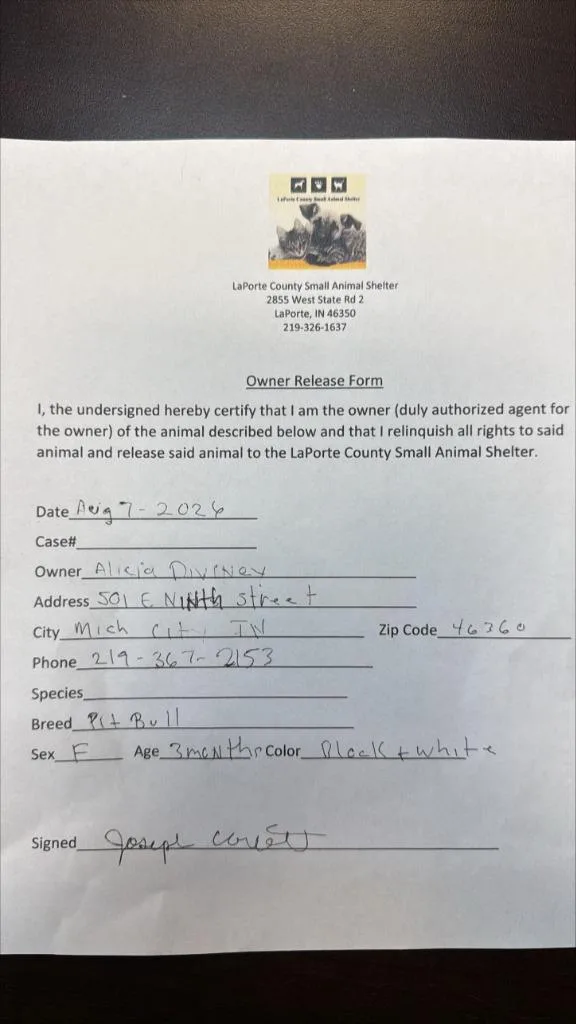 LaPorte County Small Animal Shelter
LaPorte County Small Animal Shelter
2855 West State Rd 2
LaPorte, IN 46350
219-326-1637
Owner Release Form
I, the undersigned hereby certify that I am the owner (duly authorized agent for
the owner) of the animal described below and that I relinquish all rights to said
animal and release said animal to the LaPorte County Small Animal Shelter.
Date Aug 7 - 2026
Case#
Owner Alicia Diviney
Address 501 E NINth street
City Mich City, IN Zip Code 46360
Phone 219-367-2153
Species
Breed Pit Bull
Sex F Age 3 moNths Color Black + white
Signed Joseph